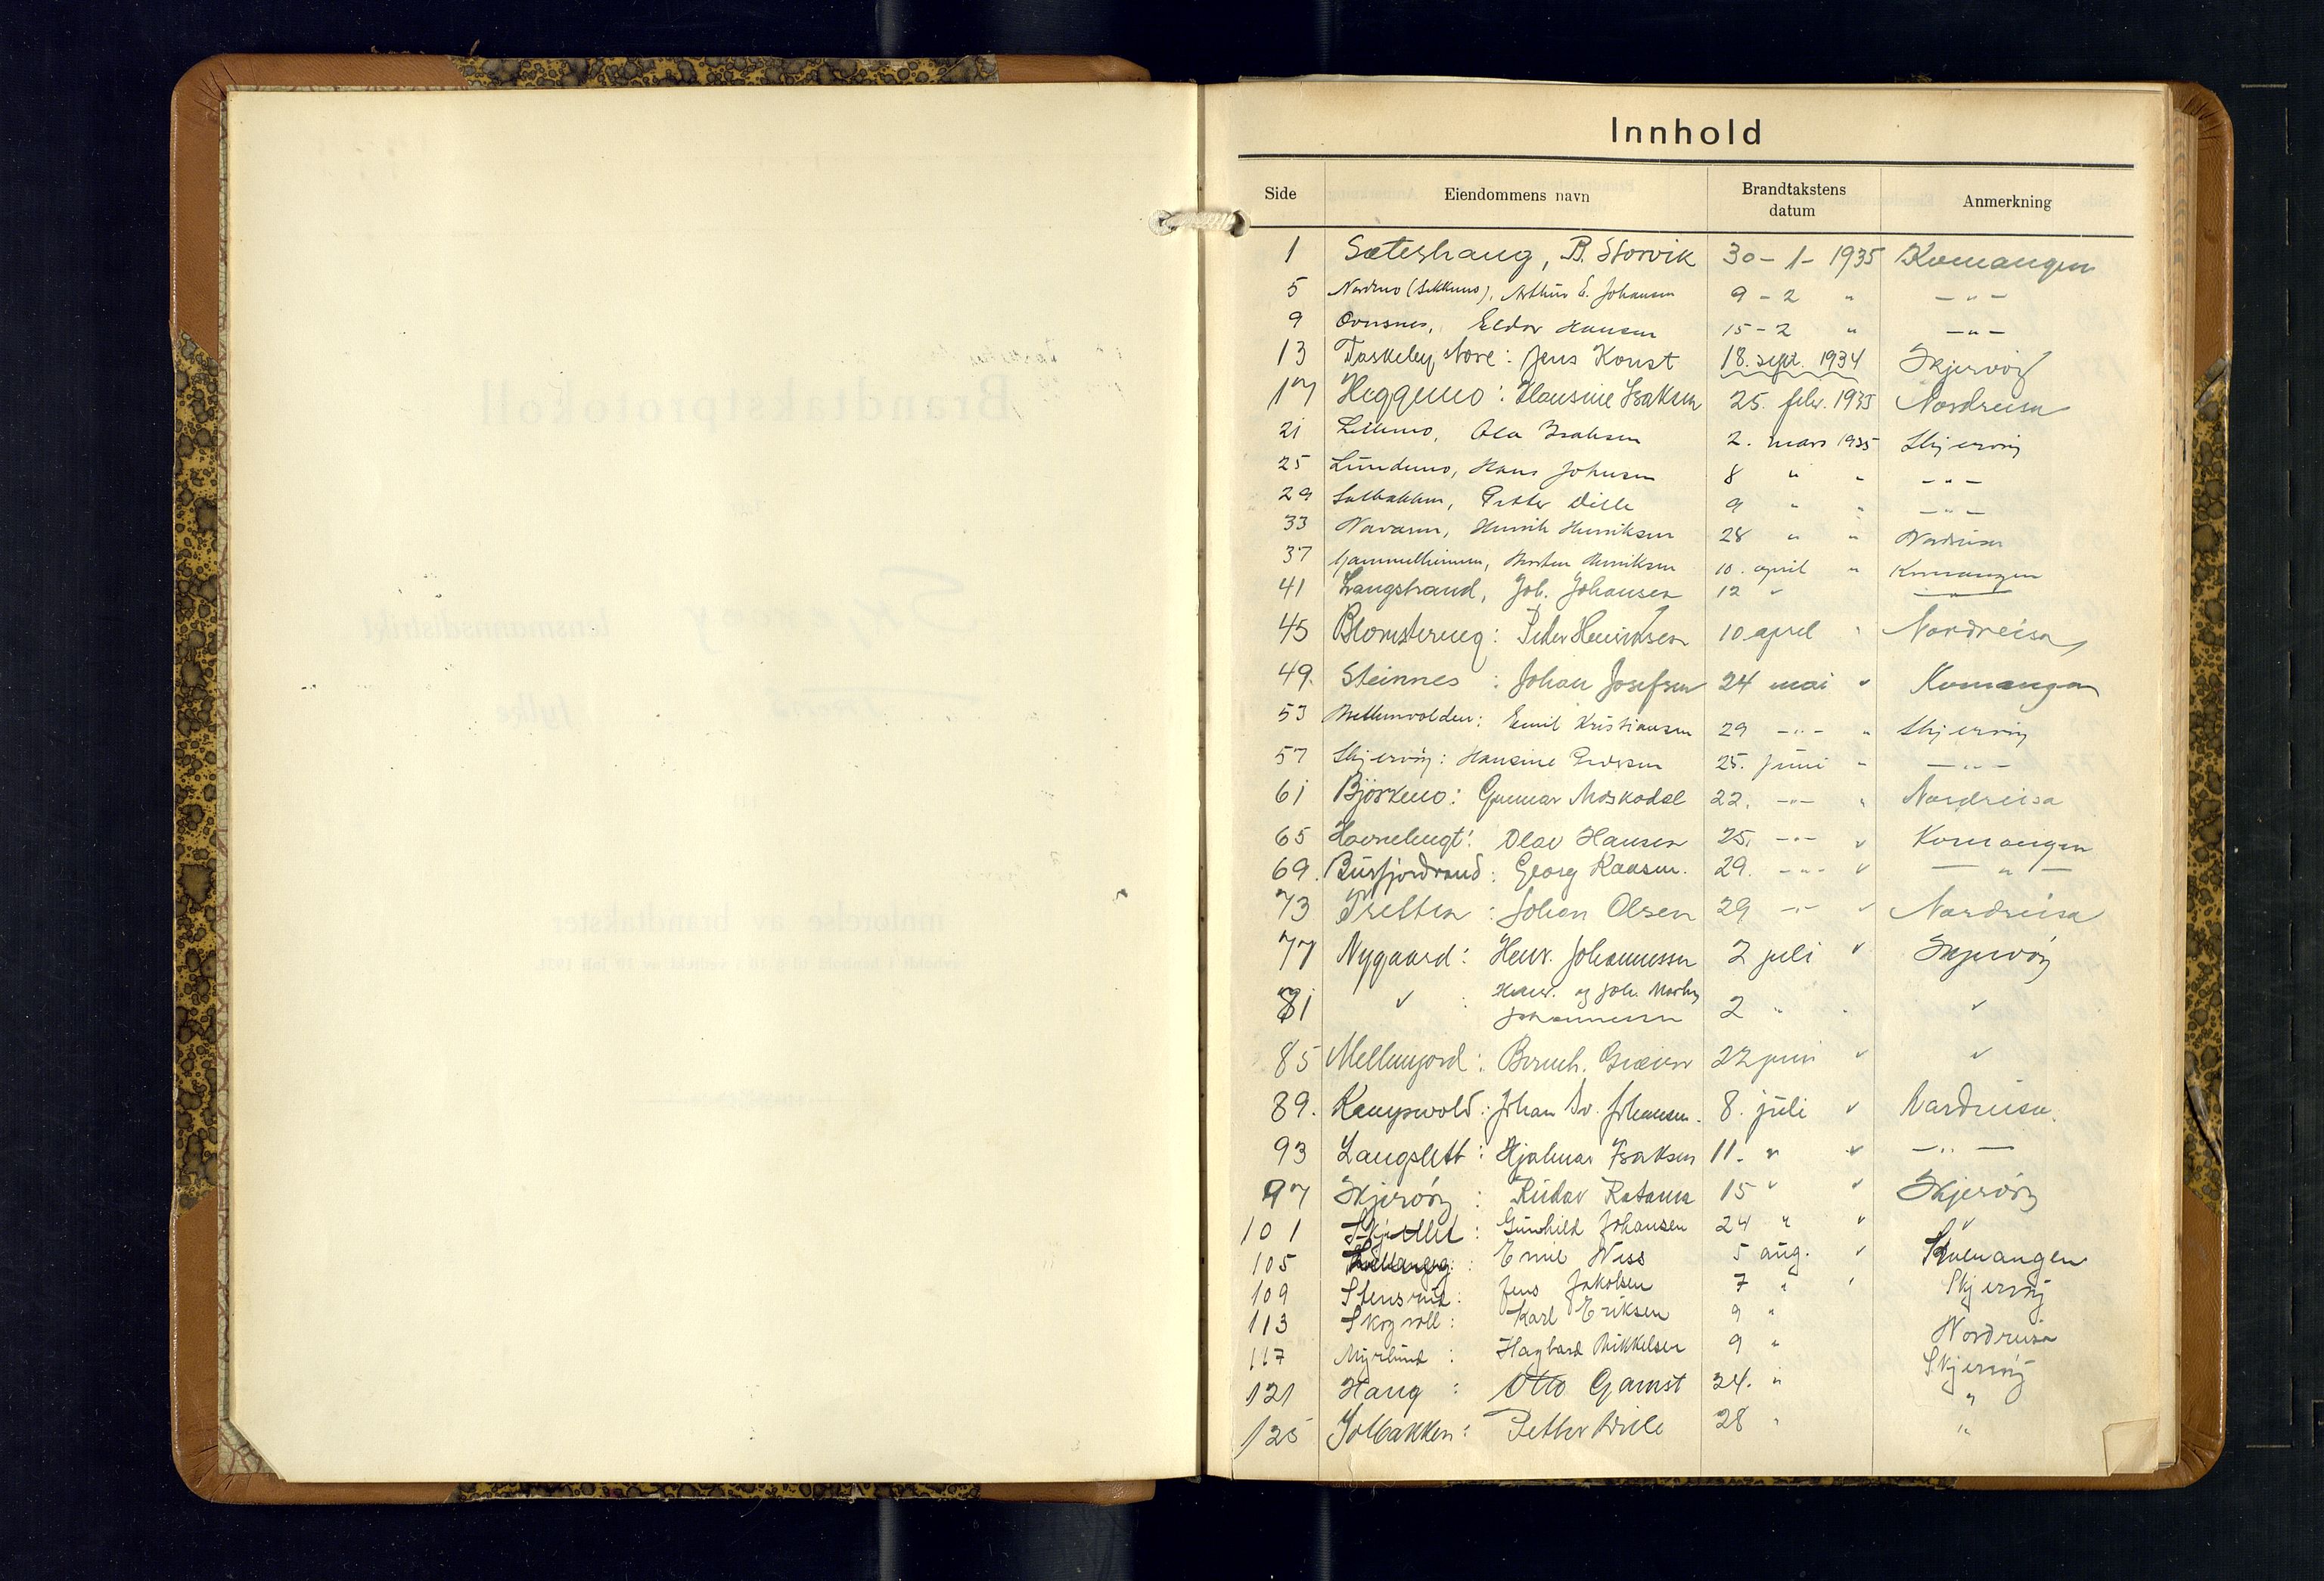 Innhold
Side Eiendommens navn Brandtakstens datum Anmerkning
1 Sæteshaug, B. Storvik 30 - 1 - 1935 Kvænangen
5 Nordmo (Sekkemo), Arthur E. Johansen 9 - 2 " - " -
9 Ovnsnes, Eldor Hansen 15 - 2 " - " -
13 Taskeby store : Jens Konst 18. sept. 1934 Skjervöy
17 Heggemo : Hansine Isaksen 25. febr. 1935 Nordreisa
21 Lillemo, Ola Isaksen 2. mars 1935 Skjervöy
25 Lundemo, Hans Johnsen 8 " " - " -
29 Solbakken, Petter Dille 9 " " - " -
33 Navaren, Henrik Henriksen 28 " " Nordreisa
37 Gammelheimen, Morten Henriksen 10. april " Kvænangen
41 Langstrand, Joh. Johansen 12 " "
45 Blomstereng : Peder Henriksen 10 april " Nordreisa
49. Steinnes : Johan Josefsen 24 mai " Kvænangen
53 Mellemvolden : Emil Kristiansen 29 - " - " Skjervöy
57 Skjervöy : Hansine Pedersen 25. juni " - " -
61 Björkmo : Gunnar Moskodal 22. - " - " Nordreisa
65 Havnebugt : Olav Hansen 25. - " - " Kvænangen
69. Bursfjordrand : Georg Kaasen. 29. - " - " - " -
73 Tretten : Johan Olsen 29 - " - " Nordreisa
77 Nygaard : Henr. Johannessen 2 juli " Skjervöy
81 " : Henr. og Joh. Norby
Johannessen 2 " " "
85 Mellemjord : Bernh. Græier 22 juni " "
89. Kempevold : Johan Av. Johansen. 8. juli " Nordreisa.
93 Langslett : Hjalmar Isaksen 11. " " - " -
97 Skjervöy : Ridar Ratama 15 " " Skjervöy
101 Skjellet : Gunhild Johansen 24 " " "
105 : Emil Wiss 5 aug. " Kvænangen
109 Stensrud : Jens Jakobsen 7 " " Skjervöy
113 Skogvoll : Karl Eriksen 9 " Nordreisa
117 Myrlund : Hagbard Mikkelsen 9 " Skjervöy
121 Haug : Otto Gamst 24. " "
125 Solbakken : Petter Dille 28 " "